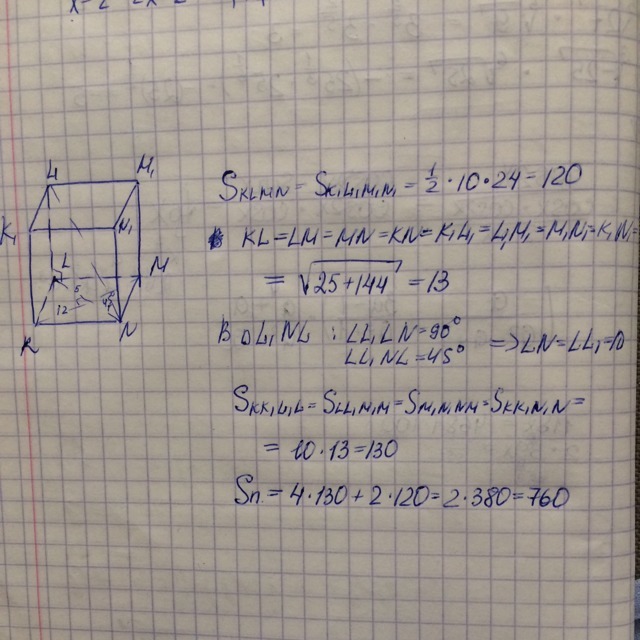 L₁ M₁
K₁ N₁
L M
5
12 45°
K N
S_KLMN = S_K₁L₁M₁N₁ = 1/2 · 10 · 24 = 120
KL = LM = MN = KN = K₁L₁ = L₁M₁ = M₁N₁ = K₁N₁ =
= √(25+144) = 13
В △L₁NL : ∠L₁LN = 90°
∠L₁NL = 45° => LN = LL₁ = 10
S_KK₁L₁L = S_LL₁M₁M = S_M₁N₁NM = S_KK₁N₁N =
= 10 · 13 = 130
Sп. = 4 · 130 + 2 · 120 = 2 · 380 = 760